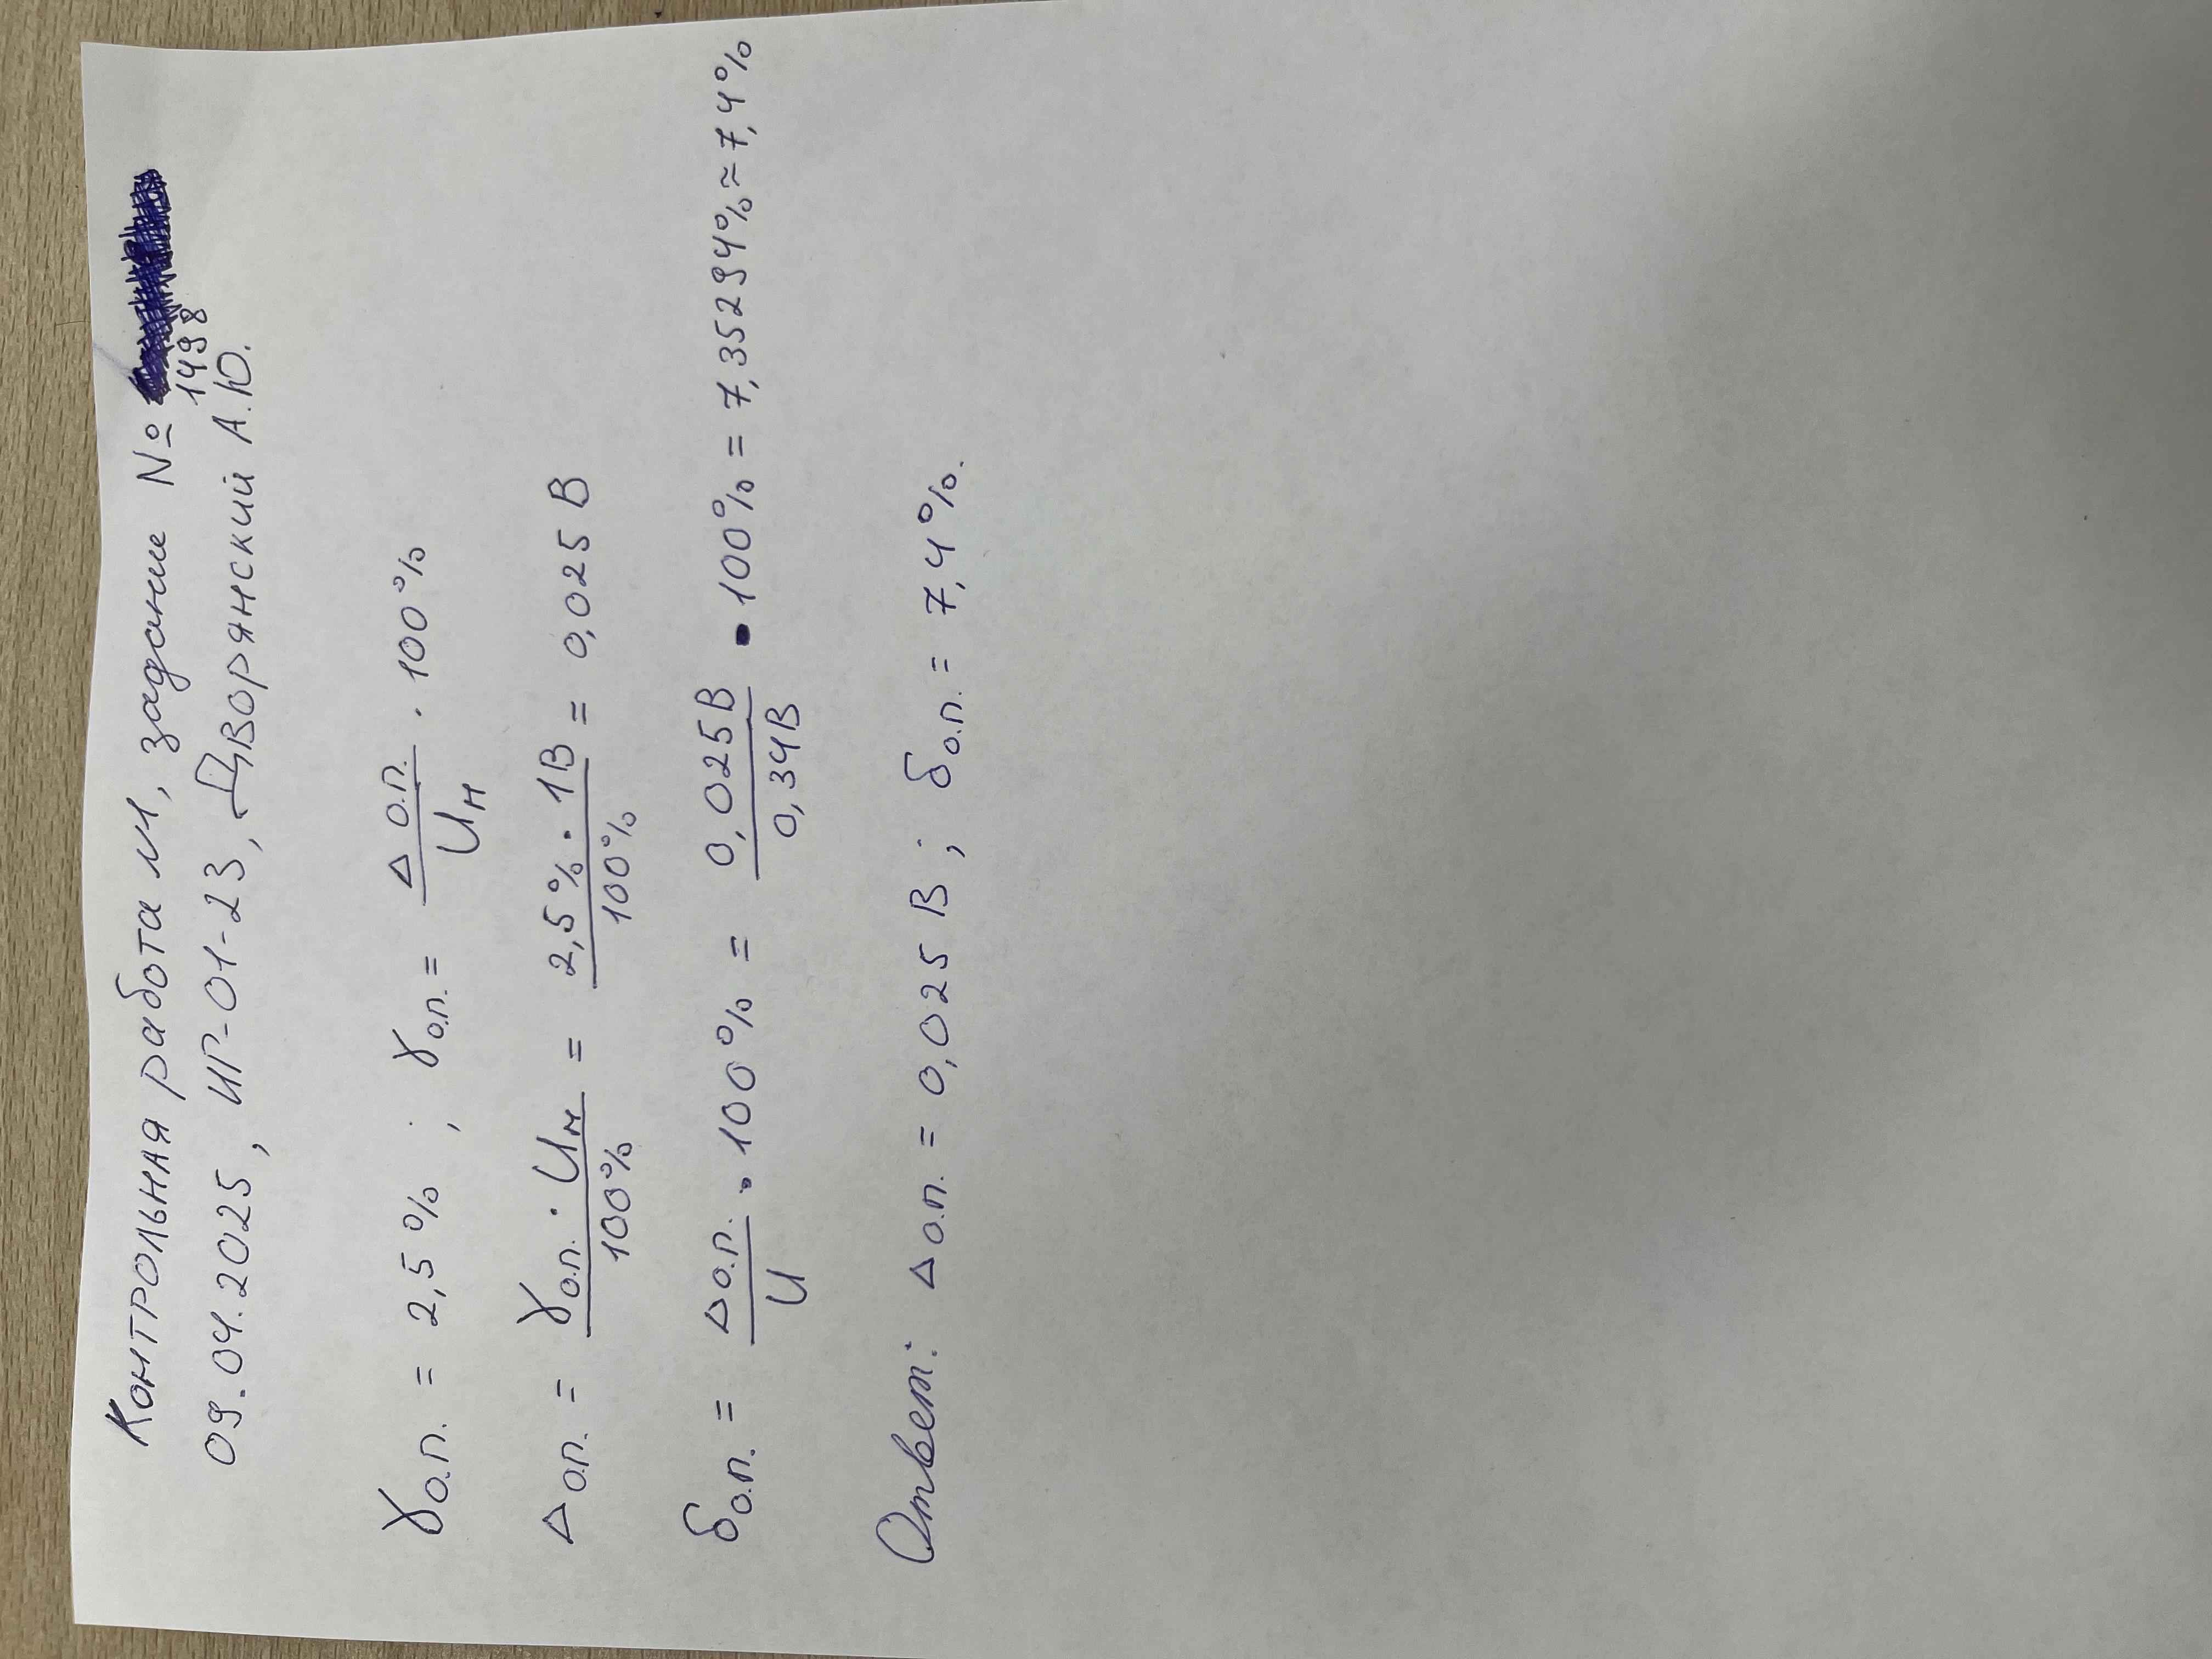 Контрольная работа №1, задание №
1498
09.04.2025, ИР-01-23, Дворянский А.Ю.
γо.п. = 2,5% ; γо.п. = Δо.п./Uн · 100%
Δо.п. = γо.п. · Uн/100% = 2,5% · 1В/100% = 0,025 В
δо.п. = Δо.п./U · 100% = 0,025В/0,34В · 100% = 7,35294% ≈ 7,4%
Ответ: Δо.п. = 0,025 В ; δо.п. = 7,4%.